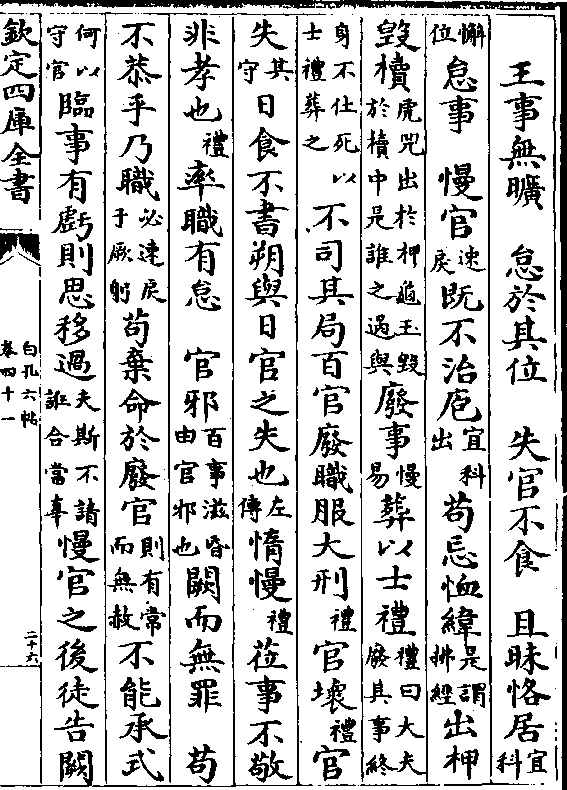 王事無曠　怠於其位　失官不食　且昧恪居宜科
懈位怠事　慢官速戾既不治庖宜科出苟忌恤緯是謂拂經出柙
毀櫝虎兕出於柙龜玉毀於櫝中是誰之過與廢事慢易葬以士禮禮曰大夫廢其事終
身不仕死以士禮葬之不司其局百官廢職服大刑禮官壞禮官
失其守日食不書朔與日官之失也左傳惰慢禮莅事不敬
非孝也禮率職有怠　官邪百事滋昏由官邪也闕而無罪　苟
不恭乎乃職必速戾于厥躬苟棄命於廢官則有常而無赦不能承式
何以守官臨事有虧則思移過夫斯不請誑合當辜慢官之後徒告闕
欽定四庫全書
白孔六帖
卷四十一
二十六